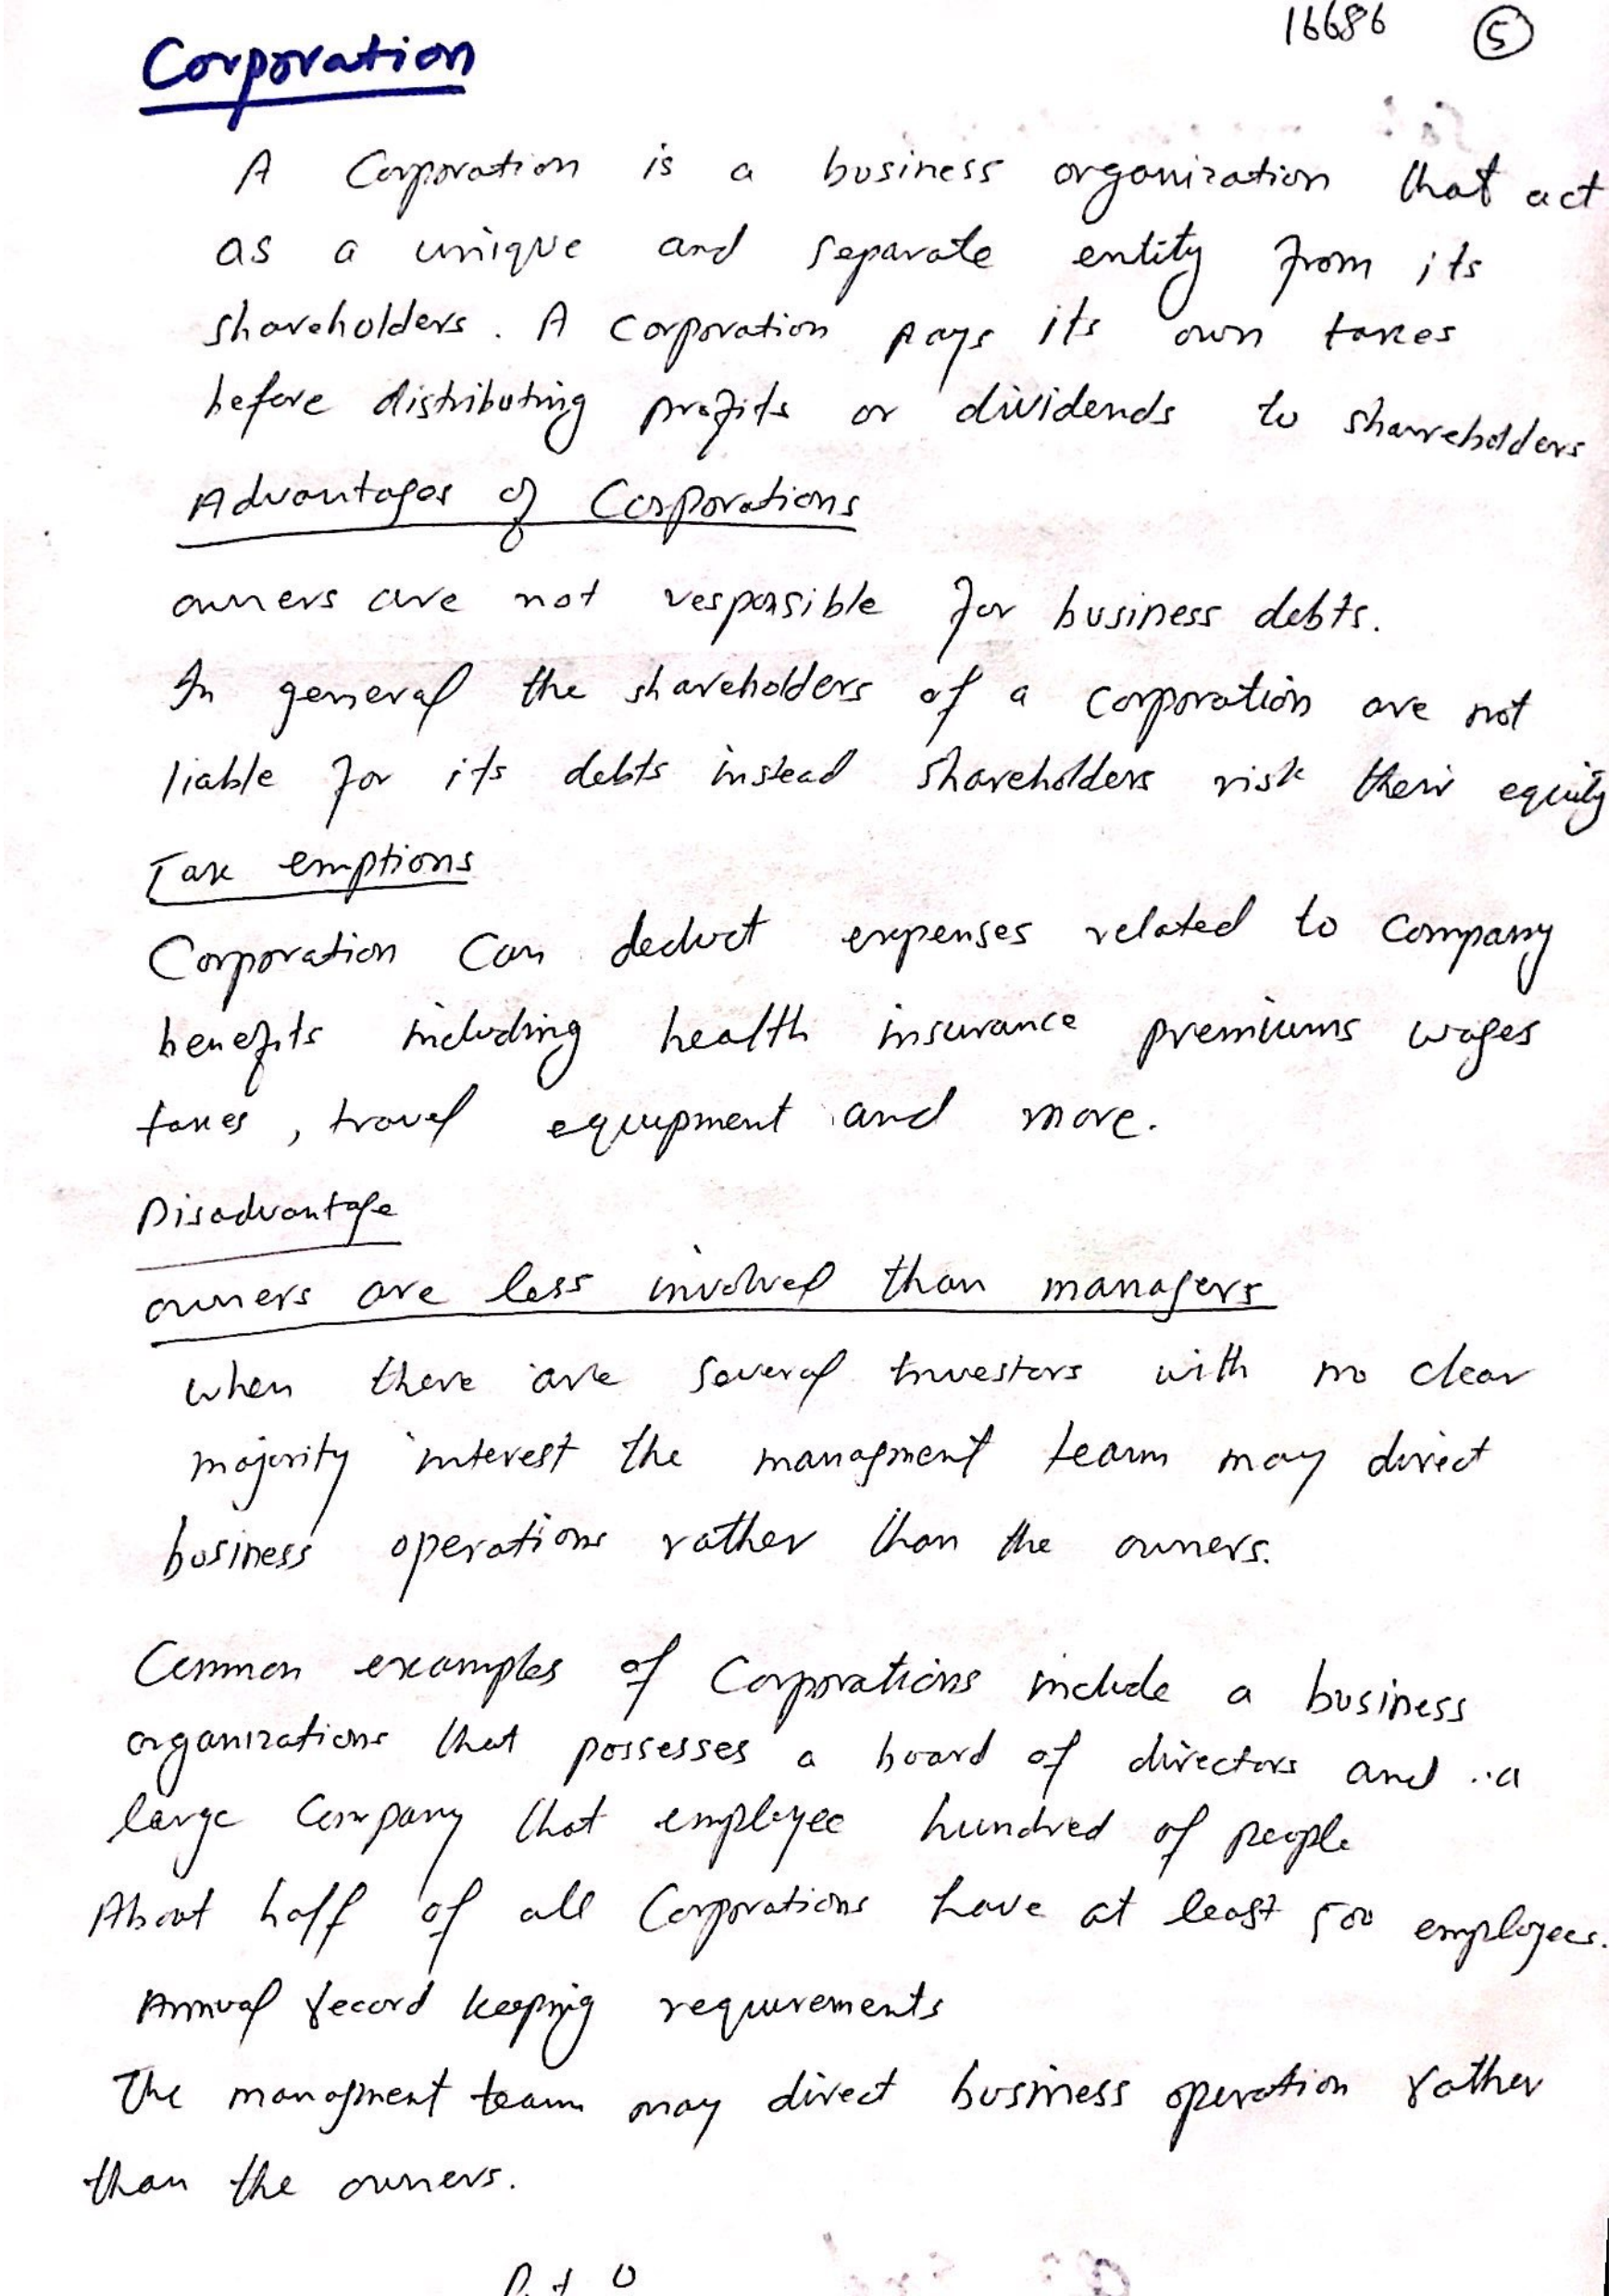 16686 5
Corporation
A Corporation is a business organization that act
as a unique and separate entity from its
shareholders. A corporation pays its own taxes
before distributing profits or dividends to shareholders
Advantages of Corporations
owners are not responsible for business debts.
In general the shareholders of a corporation are not
liable for its debts instead shareholders risk their equity
Tax emptions
Corporation can deduct expenses related to company
benefits including health insurance premiums wages
taxes, travel equipment and more.
Disadvantage
owners are less involved than managers
when there are several Investors with no clear
majority interest the managment team may direct
business operations rather than the owners.
Common examples of Corporations include a business
organizations that possesses a board of directors and a
large Company that employee hundred of people
About half of all Corporations have at least 500 employees.
Annual record keeping requirements
The managment team may direct business operation rather
than the owners.